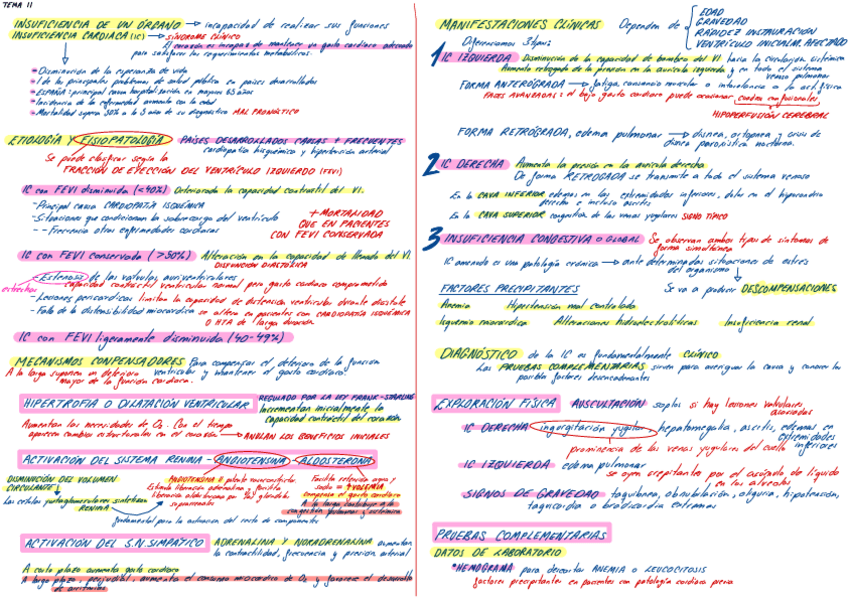 TEMA 11
INSUFICIENCIA DE UN ÓRGANO → incapacidad de realizar sus funciones
INSUFICIENCIA CARDIACA (IC) → SÍNDROME CLÍNICO
El corazón es incapaz de mantener un gasto cardiaco adecuado
para satisfacer los requerimientos metabólicos.
* Disminución de la esperanza de vida
* 1 de los principales problemas de salud pública en países desarrollados
* ESPAÑA: principal causa hospitalización en mayores 65 años
* Incidencia de la enfermedad aumenta con la edad
* Mortalidad supera 50% a los 5 años de su diagnóstico MAL PRONÓSTICO
ETIOLOGÍA Y FISIOPATOLOGÍA PAÍSES DESARROLLADOS CAUSAS + FRECUENTES
cardiopatía isquémica y hipertensión arterial
Se puede clasificar según la
FRACCIÓN DE EYECCIÓN DEL VENTRÍCULO IZQUIERDO (FEVI)
IC con FEVI disminuida (<40%) Deteriorada la capacidad contráctil del VI.
- Principal causa CARDIOPATÍA ISQUÉMICA
- Situaciones que condicionan la sobrecarga del ventrículo
- - Frecuencia otras enfermedades cardiacas
+ MORTALIDAD
QUE EN PACIENTES
CON FEVI CONSERVADA
IC con FEVI conservada (>50%) Alteración en la capacidad de llenado del VI.
DISFUNCIÓN DIASTÓLICA
- Estenosis de las válvulas auriventriculares
capacidad contráctil ventricular normal pero gasto cardiaco comprometido
estrechez
- Lesiones pericárdicas limitan la capacidad de distensión ventricular durante diástole
- Fallo de la distensibilidad miocárdica se altera en pacientes con CARDIOPATÍA ISQUÉMICA
O HTA de larga duración
IC con FEVI ligeramente disminuida (40-49%)
MECANISMOS COMPENSADORES Para compensar el deterioro de la función
ventricular y mantener el gasto cardiaco.
A la larga suponen un deterioro
mayor de la función cardiaca.
HIPERTROFIA O DILATACIÓN VENTRICULAR REGULADO POR LA LEY FRANK-STARLING
Incrementan inicialmente la
capacidad contráctil del corazón
Aumentan las necesidades de O2. Con el tiempo
aparecen cambios estructurales en el corazón → ANULAN LOS BENEFICIOS INICIALES
ACTIVACIÓN DEL SISTEMA RENINA - ANGIOTENSINA - ALDOSTERONA
DISMINUCIÓN DEL VOLUMEN
CIRCULANTE
Las células yuxtaglomerulares sintetizan
RENINA
ANGIOTENSINA II potente vasoconstrictor
Estimula liberación adrenalina y facilita
liberación aldosterona por las glándulas
suprarrenales
Facilita retención agua y
sodio → ↑ VOLEMIA
compensa el gasto cardiaco
A la larga contribuye a la
congestión pulmonar y sistémica
fundamental para la activación del resto de componentes
ACTIVACIÓN DEL S.N.SIMPÁTICO ADRENALINA Y NORADRENALINA aumentan
la contractilidad, frecuencia y presión arterial
A corto plazo aumenta gasto cardiaco
A largo plazo, perjudicial, aumenta el consumo miocárdico de O2 y favorece el desarrollo
de arritmias
MANIFESTACIONES CLÍNICAS Dependen de
EDAD
GRAVEDAD
RAPIDEZ INSTAURACIÓN
VENTRÍCULO INICIALM. AFECTADO
Diferenciamos 3 tipos:
1 IC IZQUIERDA Disminución de la capacidad de bombeo del VI hacia la circulación sistémica
Aumento retrógrado de la presión en la aurícula izquierda y en todo el sistema
venoso pulmonar
FORMA ANTERÓGRADA → fatiga, cansancio muscular o intolerancia a la act. física
FASES AVANZADAS: el bajo gasto cardiaco puede ocasionar cuadros confusionales
HIPOPERFUSIÓN CEREBRAL
FORMA RETRÓGRADA, edema pulmonar → disnea, ortopnea y crisis de
disnea paroxística nocturna.
2 IC DERECHA Aumenta la presión en la aurícula derecha
De forma RETRÓGRADA se transmite a todo el sistema venoso
En la CAVA INFERIOR edemas en las extremidades inferiores, dolor en el hipocondrio
derecho e incluso ascitis
En la CAVA SUPERIOR congestión de las venas yugulares SIGNO TÍPICO
3 INSUFICIENCIA CONGESTIVA O GLOBAL Se observan ambos tipos de síntomas de
forma simultánea
IC avanzada es una patología crónica → ante determinadas situaciones de estrés
del organismo
Se va a producir DESCOMPENSACIONES
FACTORES PRECIPITANTES
Anemia Hipertensión mal controlada
Isquemia miocárdica Alteraciones hidroelectrolíticas Insuficiencia renal
DIAGNÓSTICO de la IC es fundamentalmente CLÍNICO
Las PRUEBAS COMPLEMENTARIAS sirven para averiguar la causa y conocer los
posibles factores desencadenantes
EXPLORACIÓN FÍSICA AUSCULTACIÓN soplos si hay lesiones valvulares
asociadas
IC DERECHA ingurgitación yugular, hepatomegalia, ascitis, edemas en
extremidades
inferiores
prominencia de las venas yugulares del cuello
IC IZQUIERDA edema pulmonar
se oyen crepitantes por el acúmulo de líquido
en los alveolos
SIGNOS DE GRAVEDAD taquipnea, obnubilación, oliguria, hipotensión,
taquicardia o bradicardia extremas
PRUEBAS COMPLEMENTARIAS
DATOS DE LABORATORIO
*HEMOGRAMA para descartar ANEMIA o LEUCOCITOSIS
factores precipitantes en pacientes con patología cardiaca previa